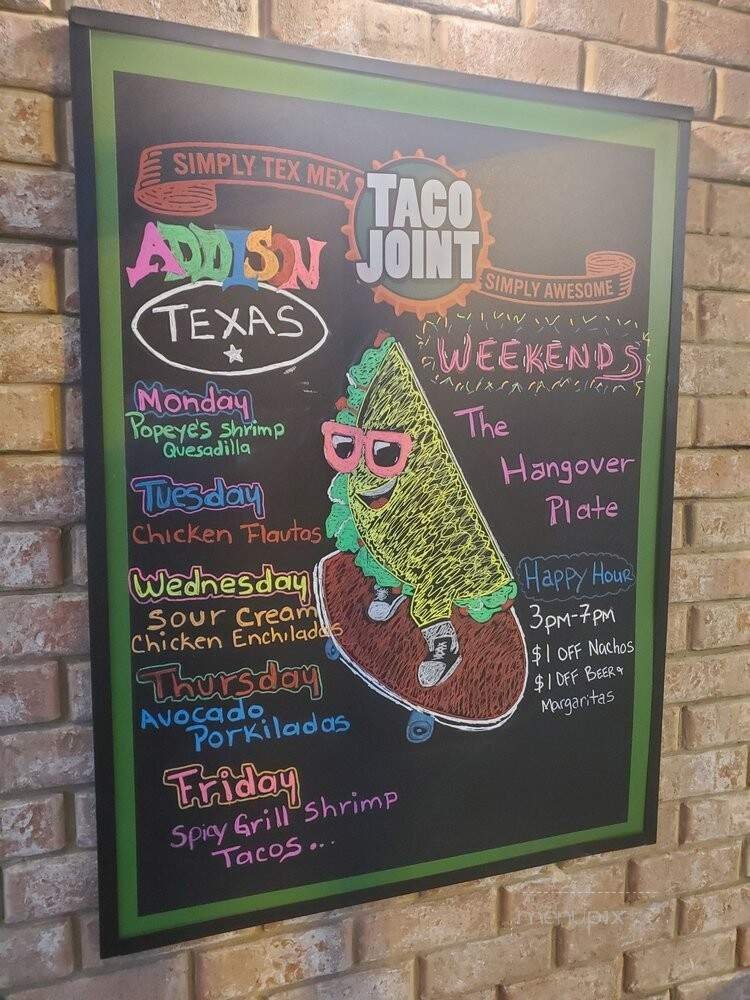 SIMPLY TEX MEX
TACO
JOINT
SIMPLY AWESOME
ADDISON
TEXAS
Monday
Popeye's shrimp
Quesadilla
Tuesday
Chicken Flautas
Wednesday
Sour Cream
Chicken Enchiladas
Thursday
Avocado
Porkiladas
Friday
Spicy Grill Shrimp
Tacos...
WEEKENDS
The
Hangover
Plate
Happy Hour
3pm-7pm
$1 OFF Nachos
$1 OFF BEER &
Margaritas
menupix